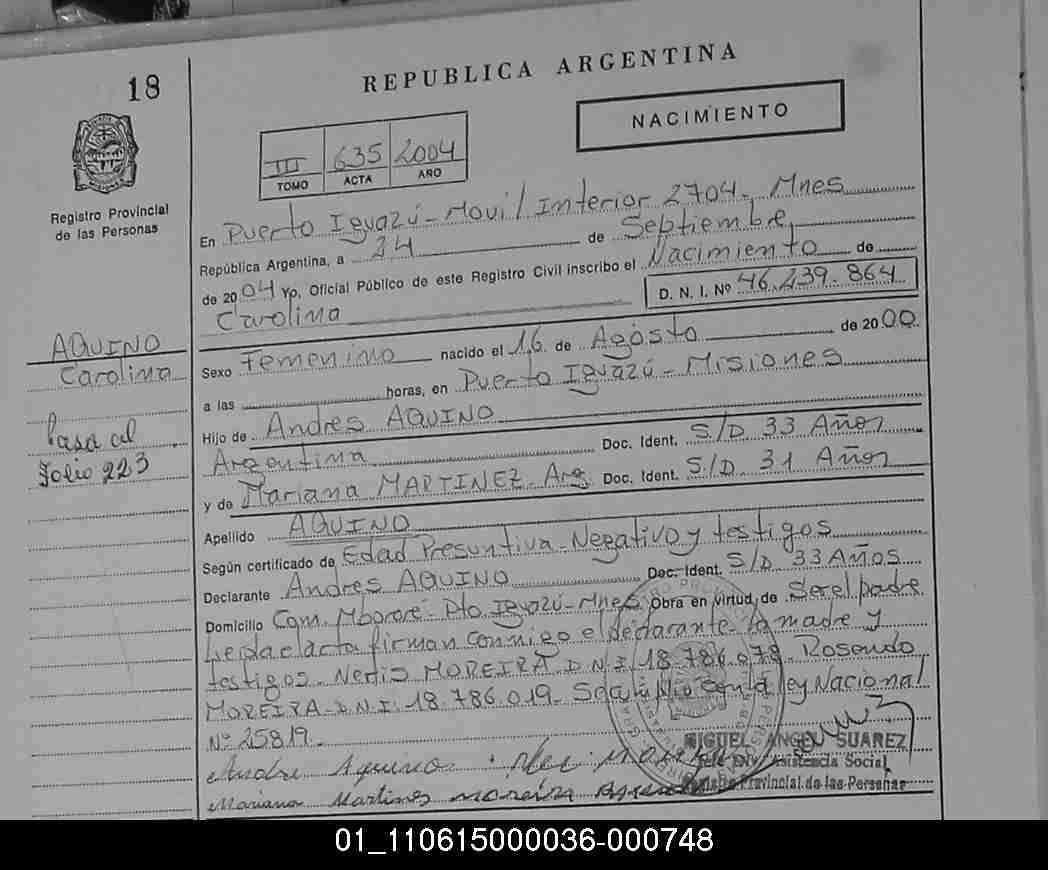 18
REPUBLICA ARGENTINA
NACIMIENTO
III 635 2004
TOMO ACTA AÑO
Registro Provincial
de las Personas
En Puerto Iguazú - Movil Interior 2704. Mnes
República Argentina, a 24 de Septiembre
de 2004 Yo, Oficial Público de este Registro Civil inscribo el Nacimiento de
Carolina D. N. I. Nº 46.239.864
AQUINO
Carolina
Pasa al
Folio 223
Sexo Femenino nacido el 16 de Agosto de 2000.
a las horas, en Puerto Iguazú - Misiones
Hijo de Andres AQUINO
Argentina Doc. Ident. S/D 33 Años
y de Mariana MARTINEZ - Arg Doc. Ident. S/D. 31 Años
Apellido AQUINO
Según certificado de Edad Presuntiva - Negativo y testigos
Declarante Andres AQUINO Doc. Ident. S/D 33 AÑOS
Domicilio Com. Mbororé - Pto. Iguazú - Mnes Obra en virtud de Ser el padre
Leida el acta firman conmigo el declarante la madre y
testigos. MOREIRA D.N.I. 18.786.079. Rosendo
MOREIRA - D.N.I. 18.786.019. Ley Nacional
Nº 25819.
Andre Aquino
Mariana Martines moreira
MIGUEL ANGEL SUAREZ
Jefe Div. Asistencia Social
Registro Provincial de las Personas
01_110615000036-000748